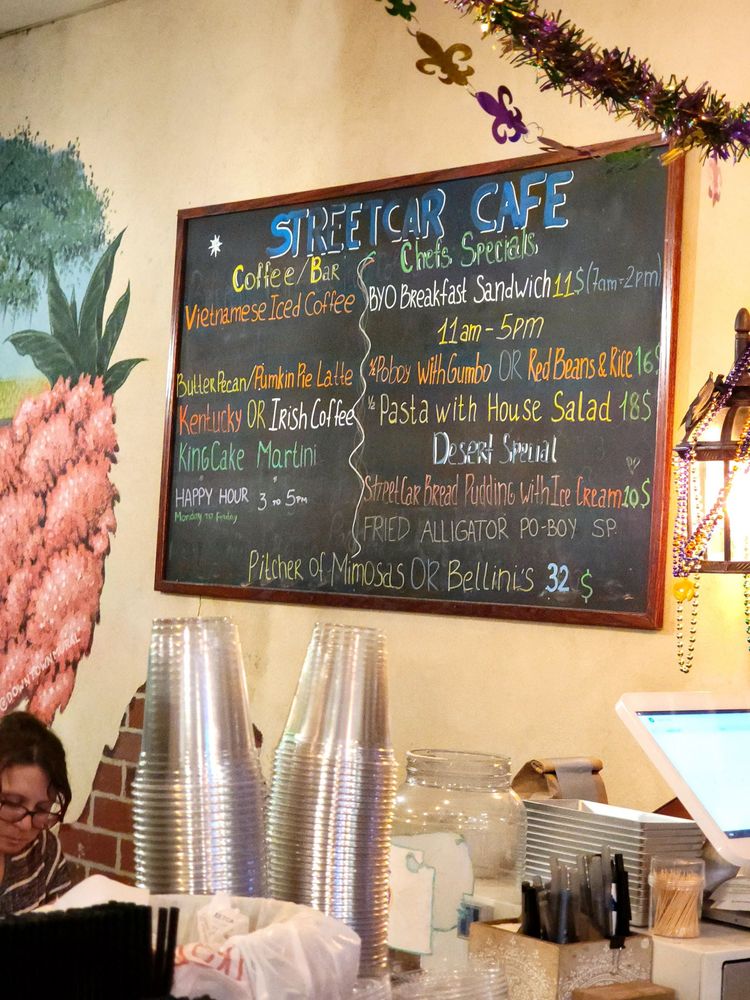 STREETCAR CAFE
Coffee/Bar
Vietnamese Iced Coffee
Butter Pecan/Pumkin Pie Latte
Kentucky OR Irish Coffee
King Cake Martini
HAPPY HOUR 3 TO 5PM
Monday to Friday
Chefs Specials
BYO Breakfast Sandwich 11$ (7am-2pm)
11am-5pm
½ Poboy with Gumbo OR Red Beans & Rice 16$
½ Pasta with House Salad 18$
Desert Special
StreetCar Bread Pudding with Ice Cream 10$
FRIED ALLIGATOR PO-BOY SP.
Pitcher of Mimosas OR Bellini's 32 $
@DOWNTOWNMURAL